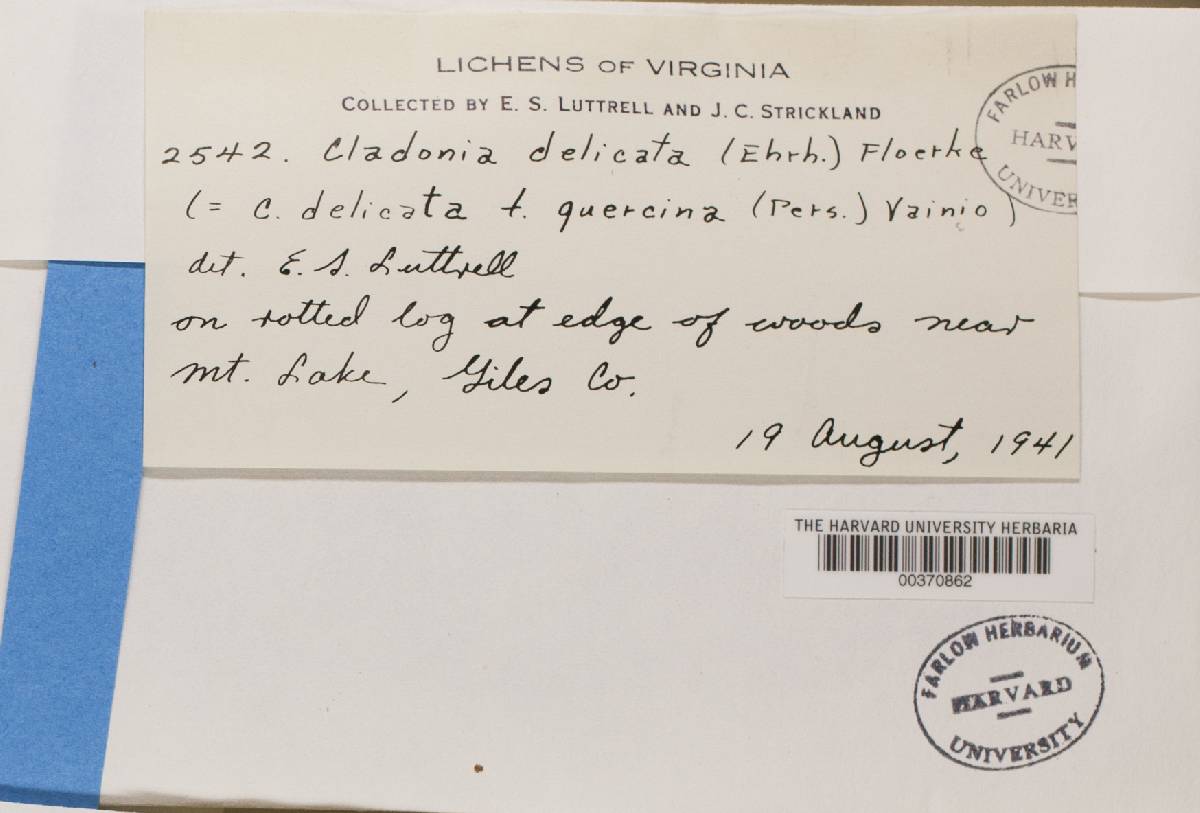 LICHENS OF VIRGINIA
COLLECTED BY E. S. LUTTRELL AND J. C. STRICKLAND
2542. Cladonia delicata (Ehrh.) Floerke
(= C. delicata f. quercina (Pers.) Vainio)
det. E. S. Luttrell
on rotted log at edge of woods near
Mt. Lake, Giles Co.
19 August, 1941
FARLOW H
HARV
UNIVER
THE HARVARD UNIVERSITY HERBARIA
00370862
FARLOW HERBARIUM
HARVARD
UNIVERSITY